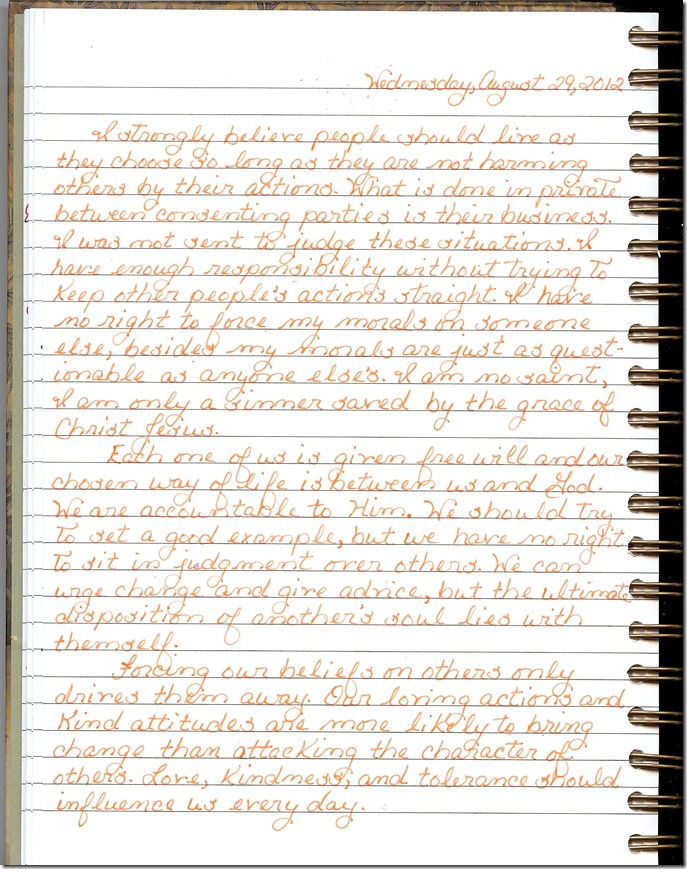 Wednesday, August 29, 2012
I strongly believe people should live as
they choose so long as they are not harming
others by their actions. What is done in private
between consenting parties is their business.
I was not sent to judge these situations. I
have enough responsibility without trying to
keep other people's actions straight. I have
no right to force my morals on someone
else, besides my morals are just as quest-
ionable as anyone else's. I am no saint,
I am only a sinner saved by the grace of
Christ Jesus.
Each one of us is given free will and our
chosen way of life is between us and God.
We are accountable to Him. We should try
to set a good example, but we have no right
to sit in judgment over others. We can
urge change and give advice, but the ultimate
disposition of another's soul lies with
themself.
Forcing our beliefs on others only
drives them away. Our loving actions and
kind attitudes are more likely to bring
change than attacking the character of
others. Love, kindness, and tolerance should
influence us every day.